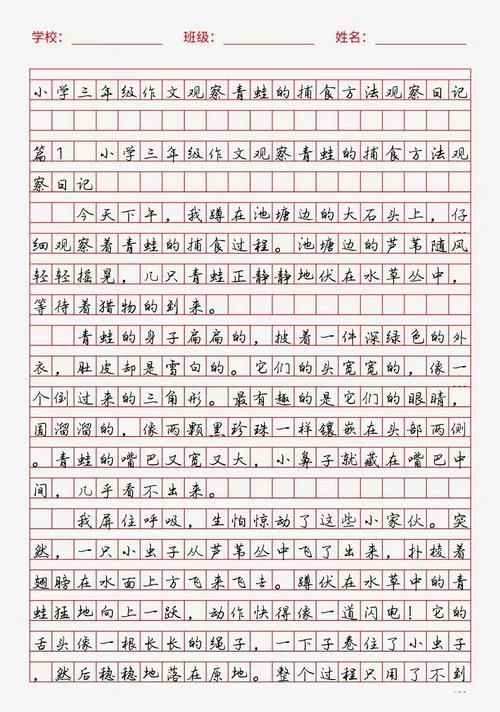 学校： 班级： 姓名：
小学三年级作文观察青蛙的捕食方法观察日记
篇1 小学三年级作文观察青蛙的捕食方法观
察日记
今天下午，我蹲在池塘边的大石头上，仔
细观察着青蛙的捕食过程。池塘边的芦苇随风
轻轻摇晃，几只青蛙正静静地伏在水草丛中，
等待着猎物的到来。
青蛙的身子扁扁的，披着一件深绿色的外
衣，肚皮却是雪白的。它们的头宽宽的，像一
个倒过来的三角形。最有趣的是它们的眼睛，
圆溜溜的，像两颗黑珍珠一样镶嵌在头部两侧
。青蛙的嘴巴又宽又大，小鼻子就藏在嘴巴中
间，几乎看不出来。
我屏住呼吸，生怕惊动了这些小家伙。突
然，一只小虫子从芦苇丛中飞了出来，扑棱着
翅膀在水面上方飞来飞去。蹲伏在水草中的青
蛙猛地向上一跃，动作快得像一道闪电！它的
舌头像一根长长的绳子，一下子卷住了小虫子
，然后稳稳地落在原地。整个过程只用了不到